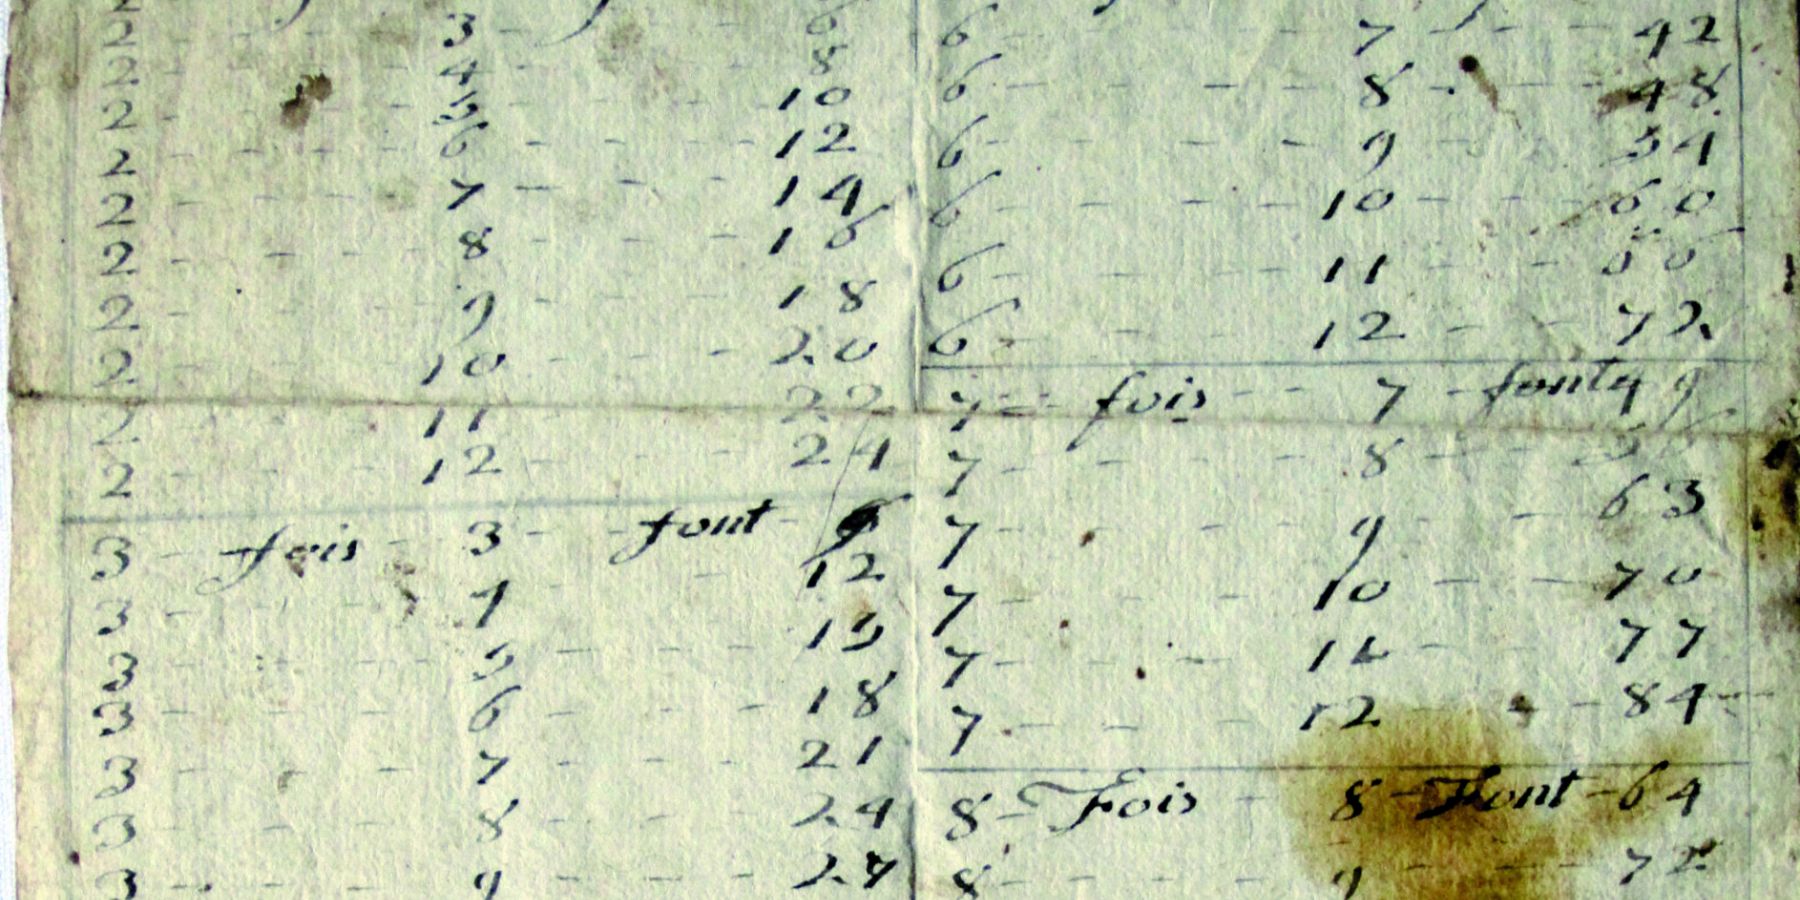 2 - - - 3 - - 6
2 - - - 4 - - 8
2 - - - 5 - - 10
2 - - - 6 - - 12
2 - - - 7 - - 14
2 - - - 8 - - 16
2 - - - 9 - - 18
2 - - - 10 - - 20
2 - - - 11 - - 22
2 - - - 12 - - 24
3 - fois - 3 - font - 9
3 - - - 4 - - 12
3 - - - 5 - - 15
3 - - - 6 - - 18
3 - - - 7 - - 21
3 - - - 8 - - 24
3 - - - 9 - - 27
6 - - - 7 - - 42
6 - - - 8 - - 48
6 - - - 9 - - 54
6 - - - 10 - - 60
6 - - - 11 - - 66
6 - - - 12 - - 72
7 - fois - - 7 - font 49
7 - - - 8 - - 56
7 - - - 9 - - 63
7 - - - 10 - - 70
7 - - - 11 - - 77
7 - - - 12 - - 84
8 - Fois - 8 - Font - 64
8 - - - 9 - - 72